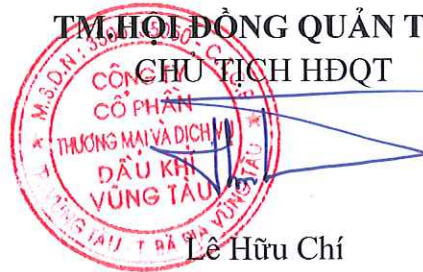 TM.HỘI ĐỒNG QUẢN T
CHỦ TỊCH HĐQT
CÔNG TY
CỔ PHẦN
THƯƠNG MẠI VÀ DỊCH VỤ
DẦU KHÍ
VŨNG TÀU
M.S.D.N:
VŨNG TÀU T. BÀ RỊA VŨNG TÀU
Lê Hữu Chí